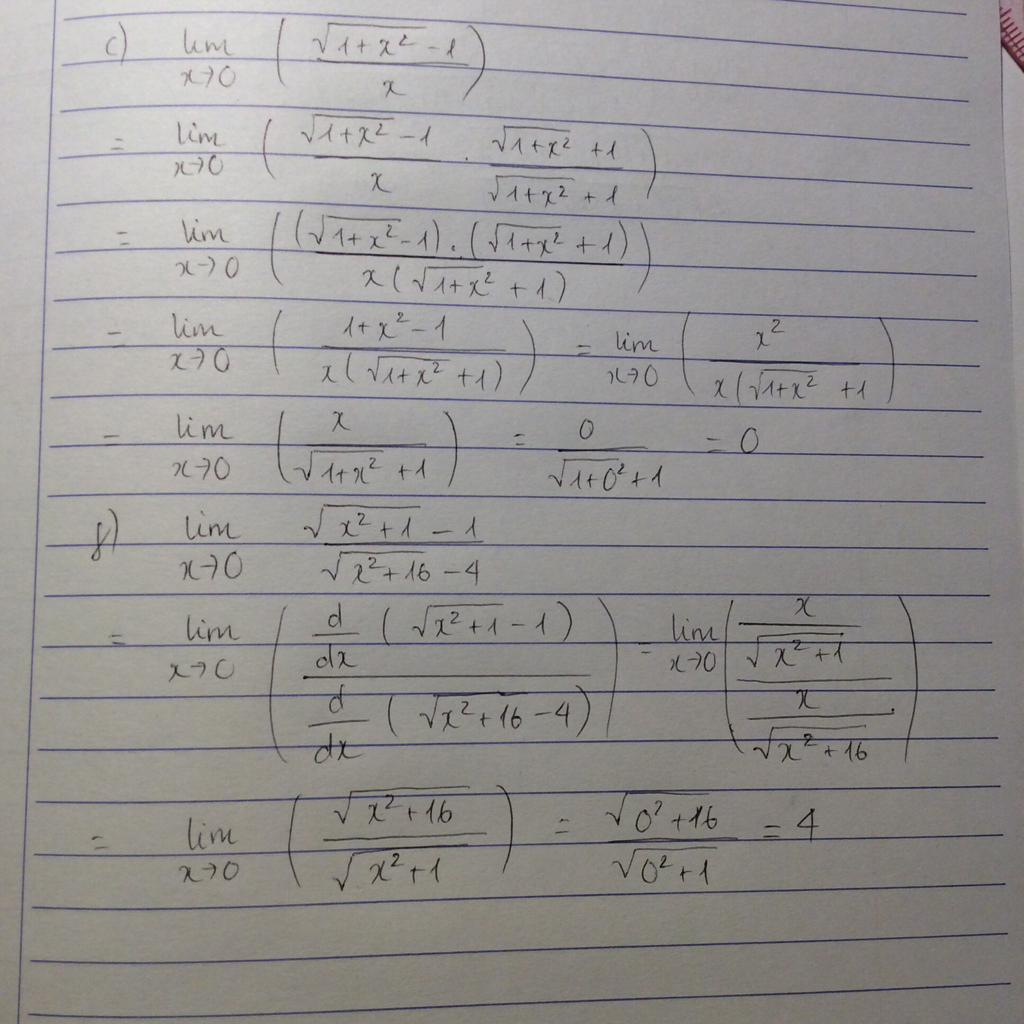 c) lim x→0 ( (√(1+x²) - 1) / x )
= lim x→0 ( (√(1+x²) - 1) / x . (√(1+x²) + 1) / (√(1+x²) + 1) )
= lim x→0 ( ((√(1+x²) - 1) . (√(1+x²) + 1)) / (x(√(1+x²) + 1)) )
= lim x→0 ( (1+x² - 1) / (x(√(1+x²) + 1)) ) = lim x→0 ( x² / (x(√(1+x²) + 1) )
= lim x→0 ( x / (√(1+x²) + 1) ) = 0 / (√(1+0²) + 1) = 0
f) lim x→0 (√(x²+1) - 1) / (√(x²+16) - 4)
= lim x→0 ( (d/dx (√(x²+1) - 1)) / (d/dx (√(x²+16) - 4)) ) = lim x→0 ( (x / √(x²+1)) / (x / √(x²+16)) )
= lim x→0 ( √(x²+16) / √(x²+1) ) = √(0²+16) / √(0²+1) = 4